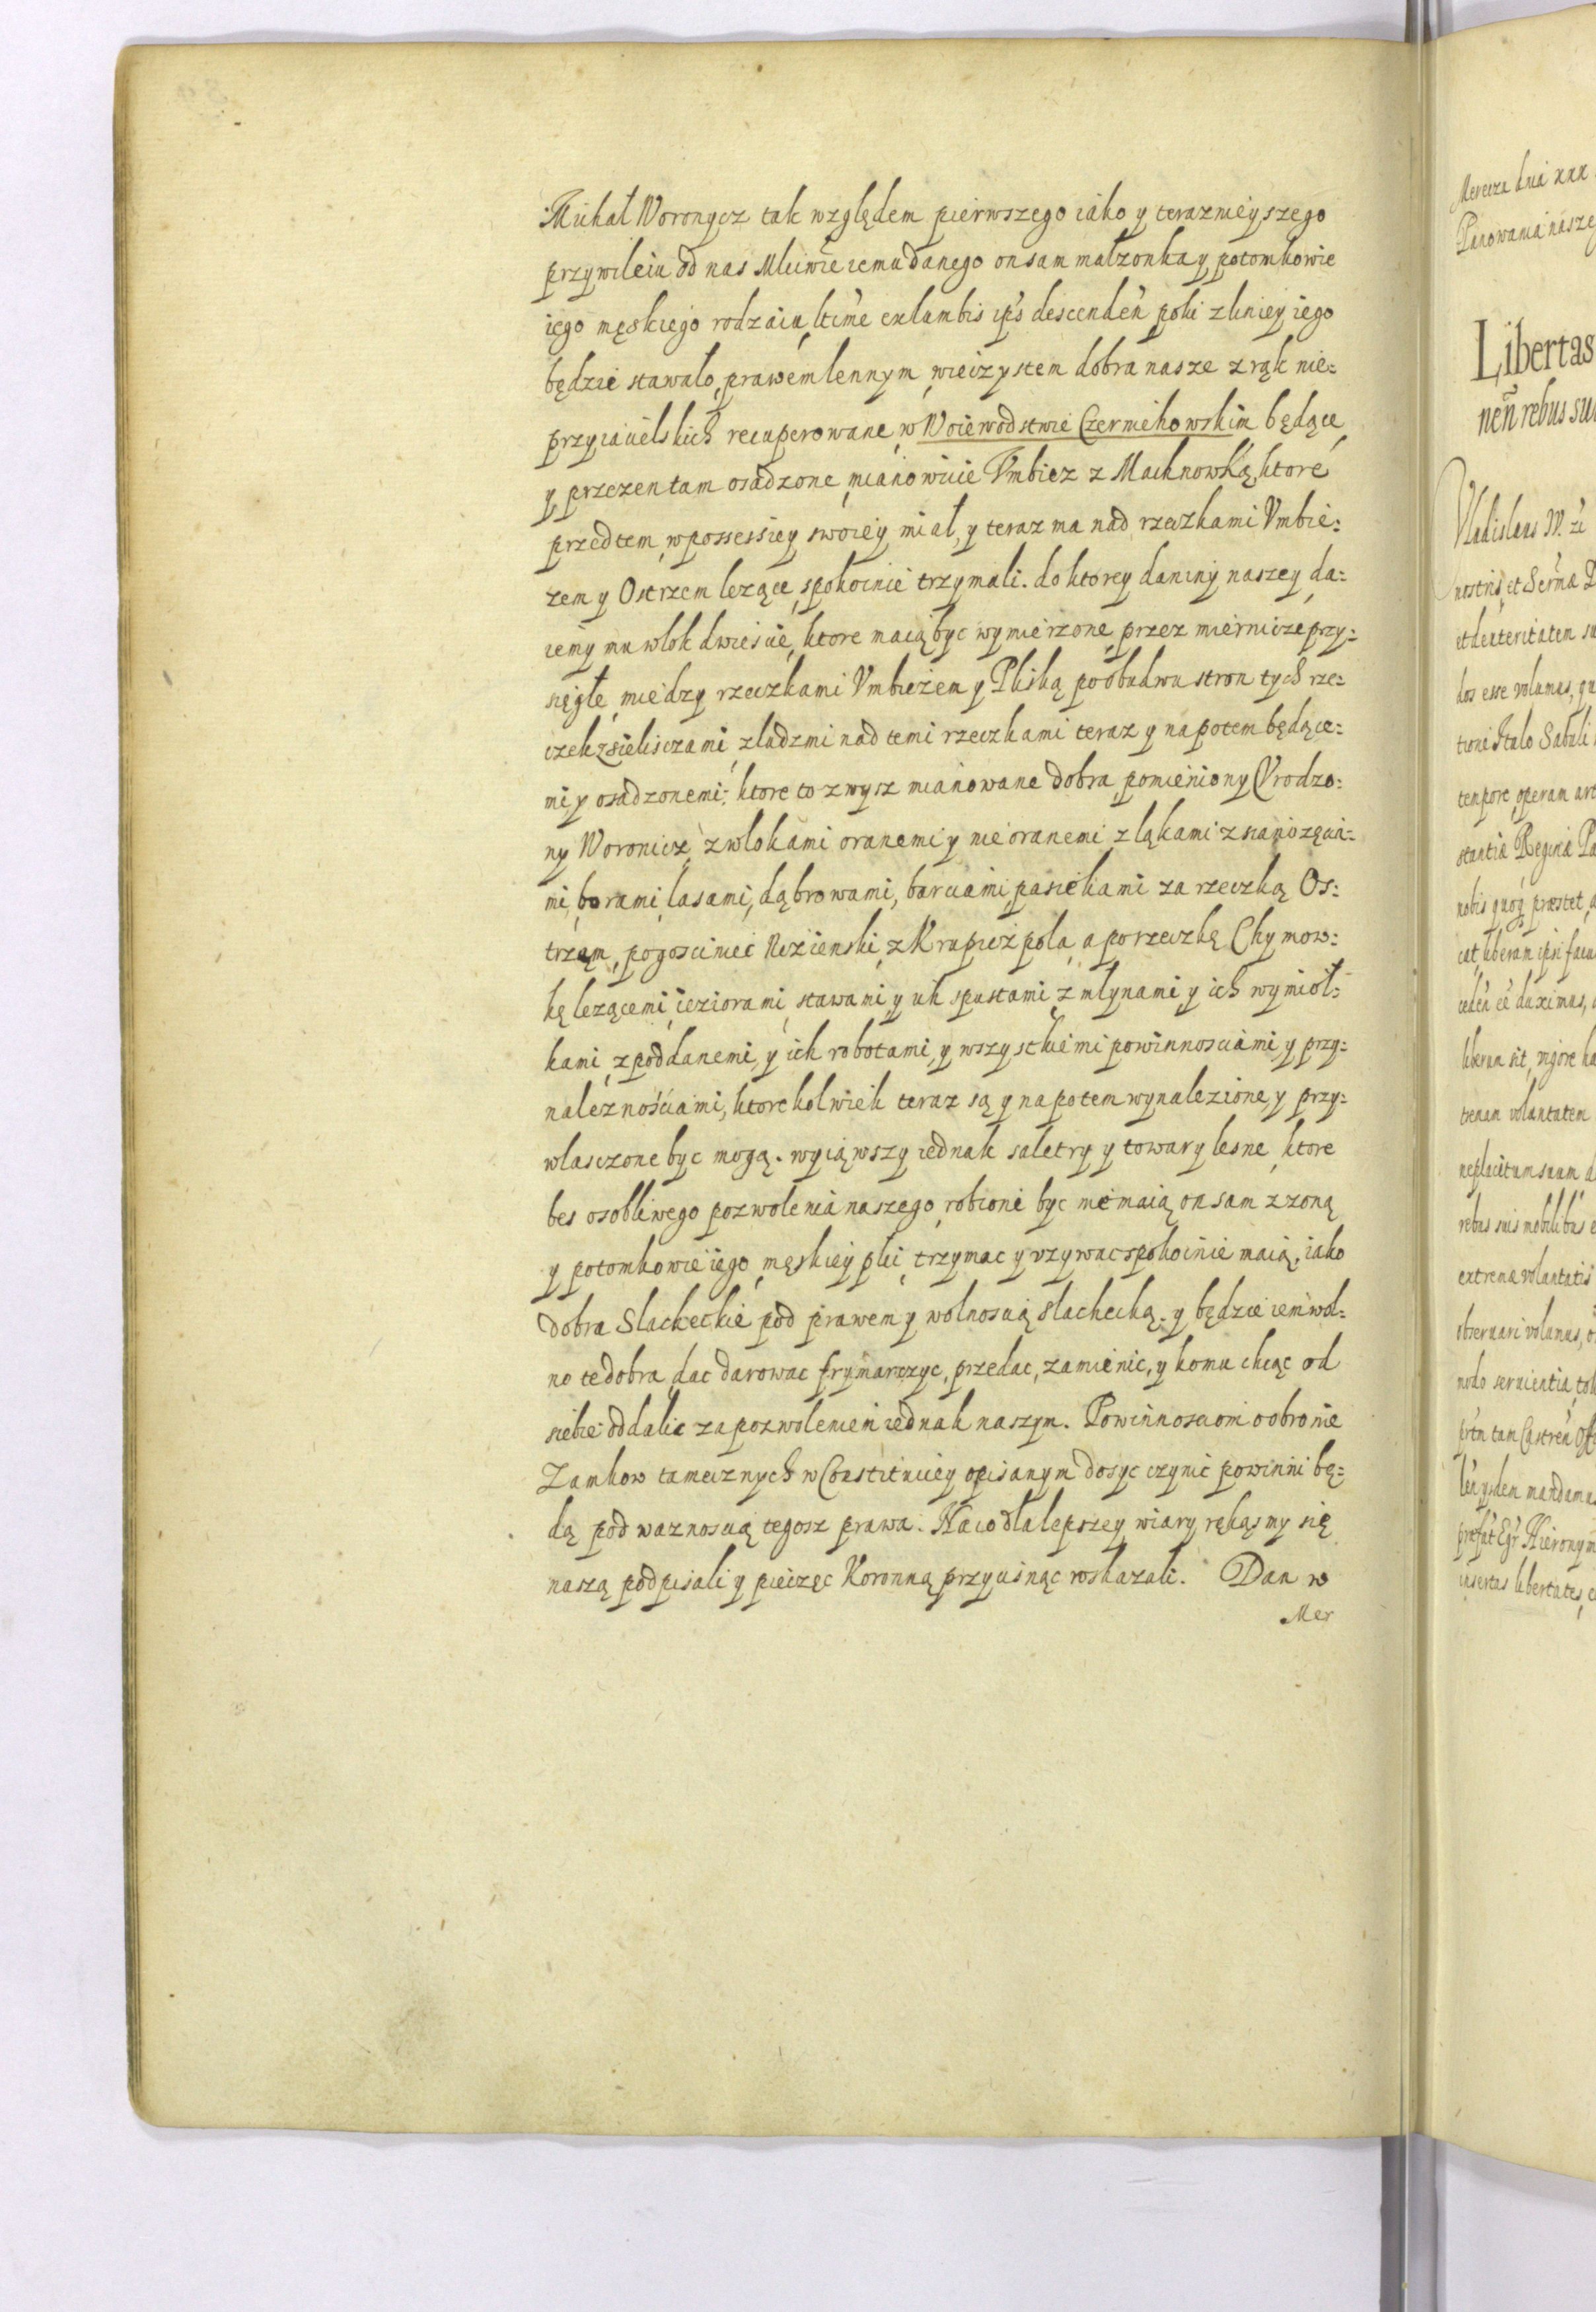 Michał Woronycz tak względem pierwszego iako y teraznieyszego
przywileiu od nas Mciwie iemu danego on sam małzonka y potomkowie
iego męskiego rodzaiu, ltime ex lumbis ips descenden poki z liniey iego
będzie stawało, prawem lennym wieczystem dobra nasze z rąk nie=
przyiacielskich recuperowane, w Woiewodstwie Czerniehowskim będące
y przezen tam osadzone, mianowicie Vmbiez z Machnowką, ktore
przedtem w possessiey swoiey miał, y teraz ma nad rzeczkami Vmbie=
zem y Ostrzem lezące, spokoinie trzymali. do ktorey daniny naszey da=
iemy mu wlok dwieście, ktore maią byc wymierzone przez miernicze przy=
sięgłe, miedzy rzeczkami Vmbiezem y Pliską po obudwu stron tych rze=
czek z sieliszczami, z ludzmi nad temi rzeczkami teraz y napotem będące=
mi, y osadzonemi; ktore to zwysz mianowane dobra pomieniony Vrodzo=
ny Woronicz, z wlokami oranemi y nie oranemi z ląkami z sianozęcia=
mi, borami, lasami, dąbrowami, barciami, pasiekami za rzeczką Os=
trzem, po gosciniec Nezienski, z Krupiczpola, a po rzeczkę Chymow=
kę lezącemi, ieziorami, stawami y ich spustami, z młynami y ich wymioł=
kami, z poddanemi, y ich robotami, y wszystkiemi powinnosciami y przy=
naleznościami, ktorekolwiek teraz są y napotem wynalezione y przy=
wlasczone byc mogą. wyiąwszy iednak saletry y towary lesne, ktore
bes osobliwego pozwolenia naszego robione byc nie maią, on sam z zoną
y potomkowie iego męskiey płci, trzymac y vzywac spokoinie maią, iako
dobra Slacheckie pod prawem y wolnoscią slachecką. y będzie iem wol=
no te dobra dac darowac frymarczyc, przedac, zamienic, y komu chcąc od
siebie oddalic za pozwoleniem iednak naszym. Powinnosciom o obronie
Zamkow tamecznych w Constituciey opisanym dosyc czynic powinni bę=
dą pod waznoscią tegosz prawa. Na co dla lepszey wiary ręką smy się
naszą podpisali y pieczęc Koronną przycisnąc roskazali. Dan w
Mer
Merecza dnia XXX
Panowania nasze
Libertas
nen rebus su
Vladislaus IV. 
nostris, et Serma
et dexteritatem su
dos esse volumus, qu
tempore, operam
stantiae Reginae
nobis quoq praestet,
liberum sit,
volantatem
rebus suis mobilibus
extremae voluntatis
observari volumus,
tam Castren
mandamus
Hieronym
insertas libertates,